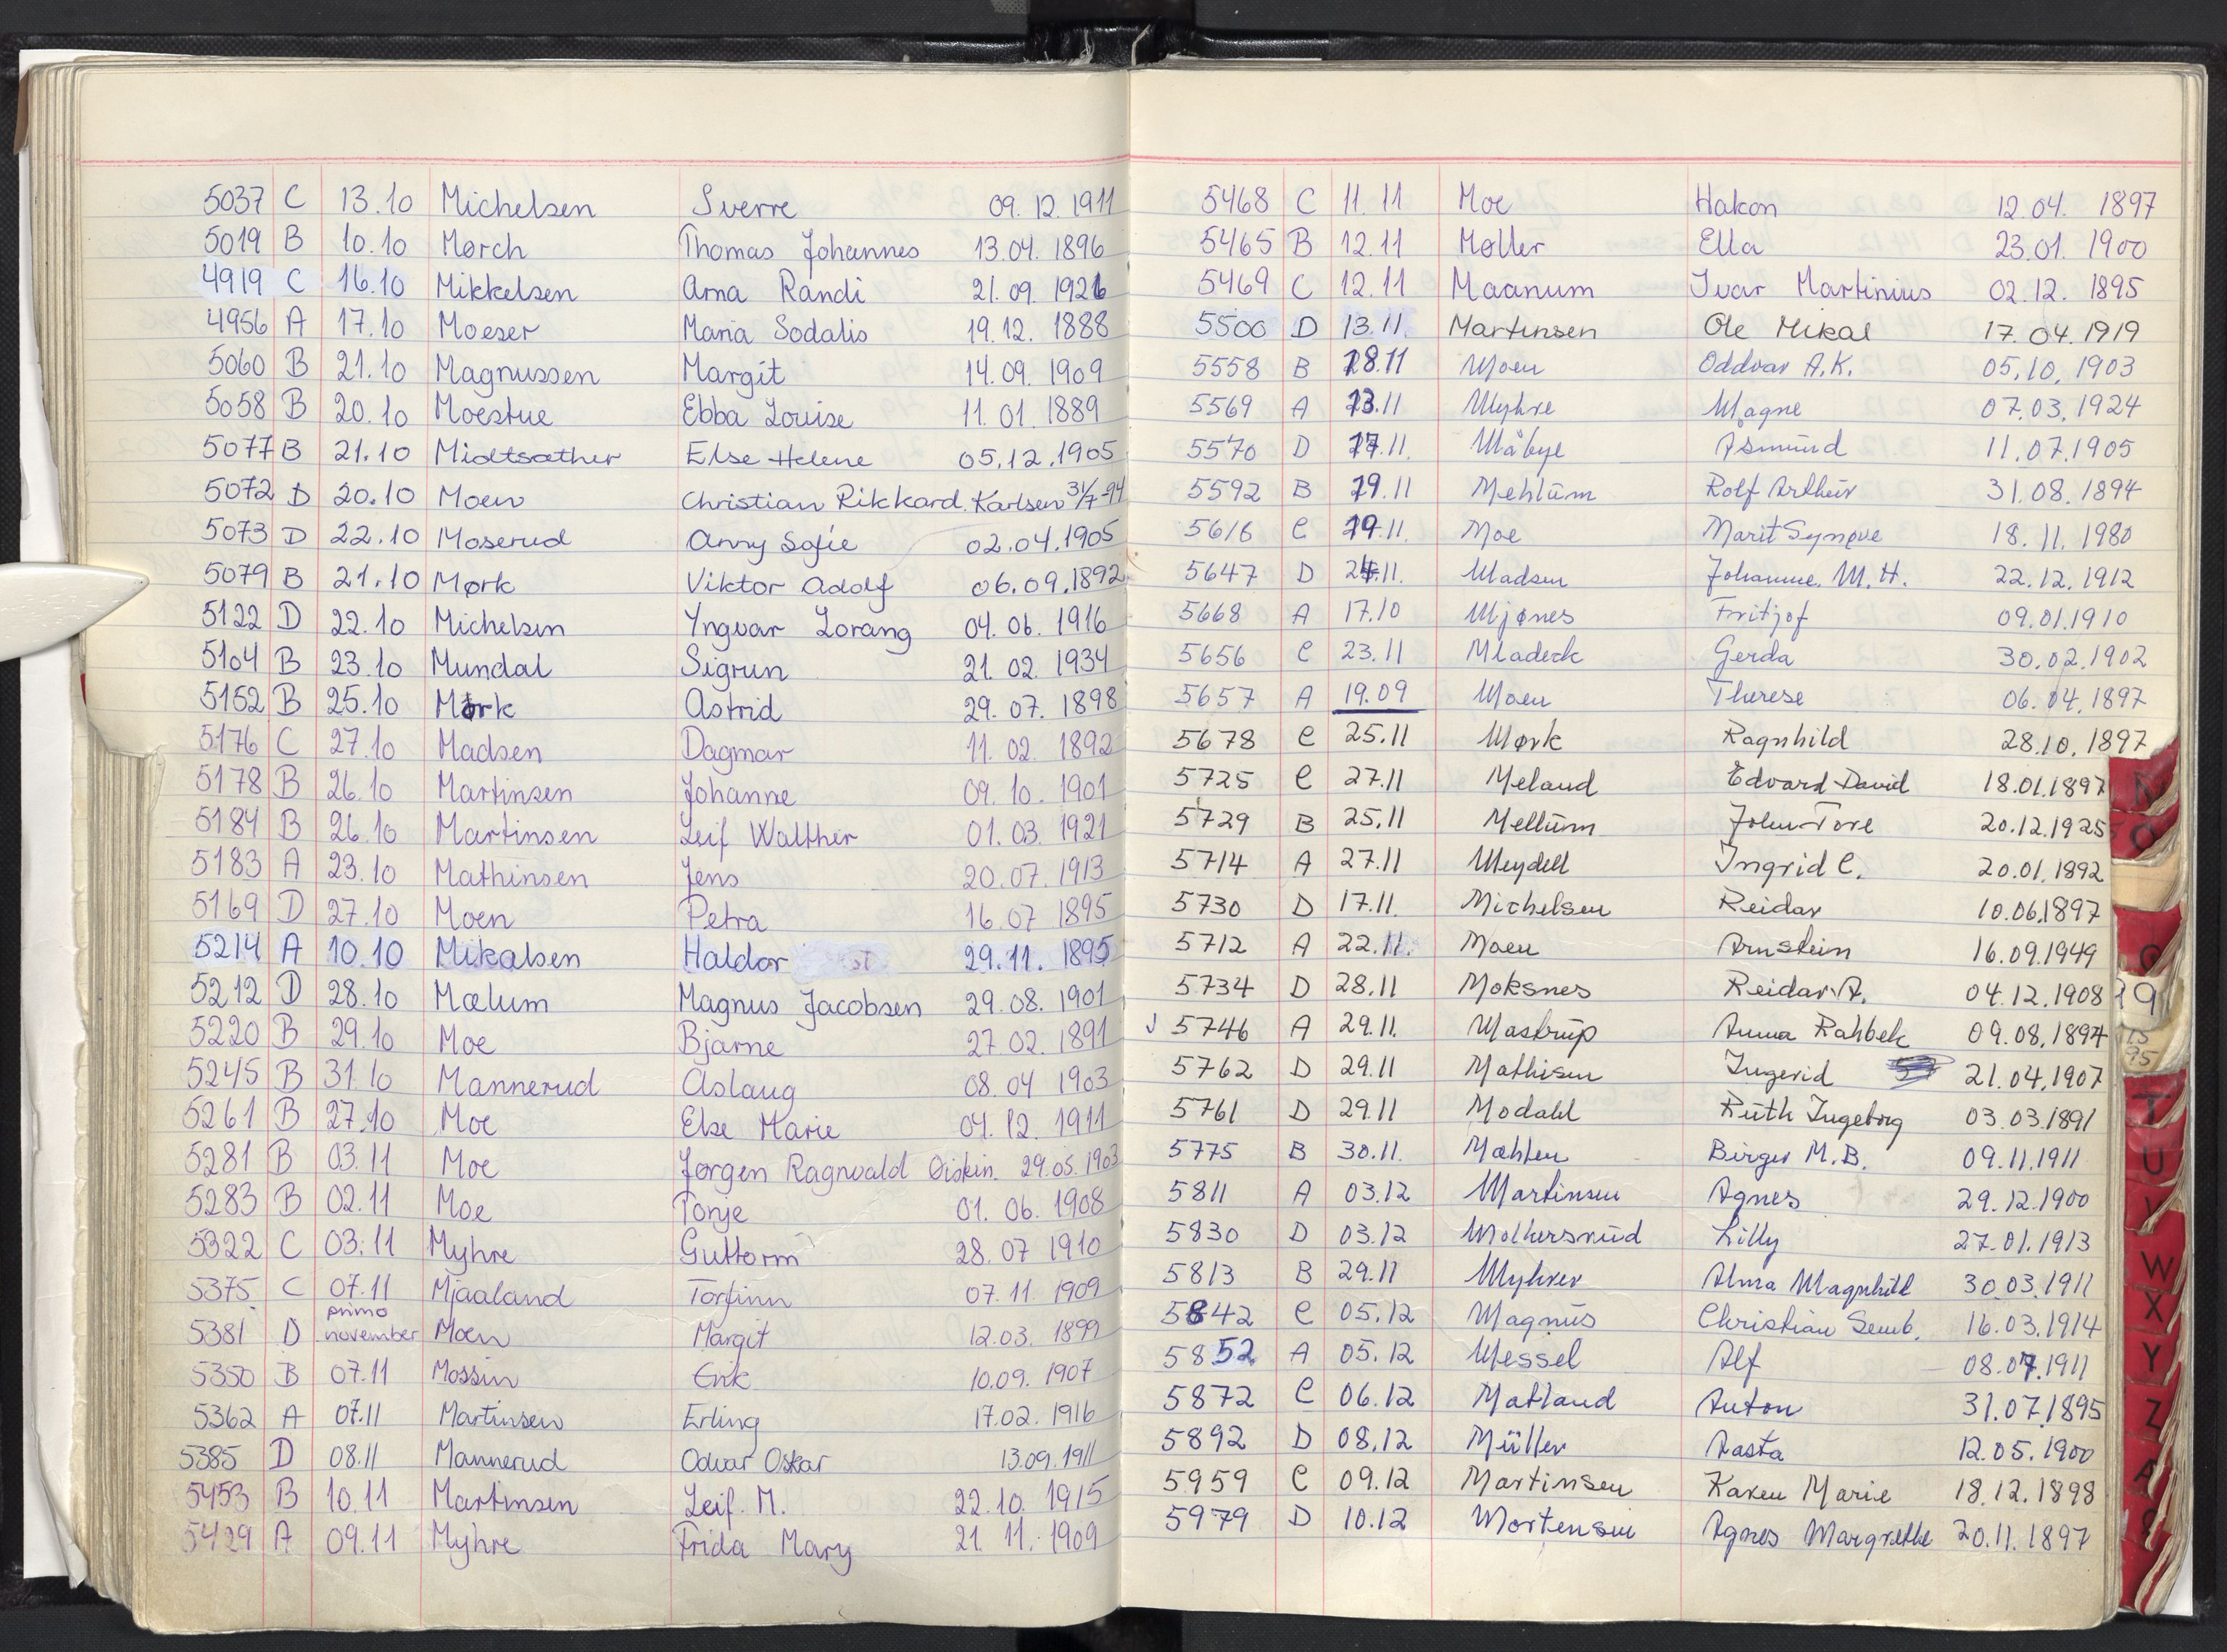 5037 C 13.10 Michelsen Sverre 09.12.1911
5019 B 10.10 Mørch Thomas Johannes 13.04.1896
4919 C 16.10 Mikkelsen Arna Randi 21.09.1926
4956 A 17.10 Moeser Maria Sodalis 19.12.1888
5060 B 21.10 Magnussen Margit 14.09.1909
5058 B 20.10 Moestue Ebba Louise 11.01.1889
5077 B 21.10 Midtsæther Else Helene 05.12.1905
5072 D 20.10 Moen Christian Rikkard Karlsen 31/7-94
5073 D 22.10 Moserud Anny Sofie 02.04.1905
5079 B 21.10 Mørk Viktor Adolf 06.09.1892
5122 D 22.10 Michelsen Yngvar Lorang 04.06.1916
5104 B 23.10 Mundal Sigrun 21.02.1934
5152 B 25.10 Mørk Astrid 29.07.1898
5176 C 27.10 Madsen Dagmar 11.02.1892
5178 B 26.10 Martinsen Johanne 09.10.1901
5184 B 26.10 Martinsen Leif Walther 01.03.1921
5183 A 23.10 Mathinsen Jens 20.07.1913
5169 D 27.10 Moen Petra 16.07 1895
5214 A 10.10 Mikalsen Haldor 29.11.1895
5212 D 28.10 Mælum Magnus Jacobsen 29.08.1901
5220 B 29.10 Moe Bjarne 27.02.1891
5245 B 31.10 Mannerud Aslaug 08.04 1903
5261 B 27.10 Moe Else Marie 04.12.1911
5281 B 03.11 Moe Jørgen Ragnvald Øistein 29.05.1903
5283 B 02.11 Moe Tonje 01.06.1908
5322 C 03.11 Myhre Guttorm 28.07 1910
5375 C 07.11 Mjaaland Torfinn 07.11.1909
5381 D primo november Moen Margit 12.03.1899
5350 B 07.11 Mossin Erik 10.09.1907
5362 A 07.11 Martinsen Erling 17.02.1916
5385 D 08.11 Mannerud Odvar Oskar 13.09.1911
5453 B 10.11 Martinsen Leif M. 22.10.1915
5429 A 09.11 Myhre Frida Mary 21.11.1909
5468 C 11.11 Moe Hakon 12.04.1897
5465 B 12.11 Møller Ella 23.01.1900
5469 C 12.11 Maanum Ivar Martinius 02.12.1895
5500 D 13.11. Martinsen Ole Mikal 17.04.1919
5558 B 18.11 Moen Oddvar A.K. 05.10.1903
5569 A 13.11 Myhre Magne 07.03.1924
5570 D 17.11. Måbye Asmund 11.07.1905
5592 B 19.11 Mehlum Rolf Arthur 31.08.1894
5616 C 19.11. Moe Marit Synøve 18.11.1980
5647 D 24.11. Madsen Johanne M.H. 22.12.1912
5668 A 17.10 Mjønes Fritjof 09.01.1910
5656 C 23.11 Mladeck Gerda 30.02.1902
5657 A 19.09 Moen Therese 06.04.1897
5678 C 25.11 Mørk Ragnhild 28.10.1897
5725 C 27.11 Meland Edvard David 18.01.1897
5729 B 25.11 Mellum John Tore 20.12.1925
5714 A 27.11 Meydell Ingrid C. 20.01.1892
5730 D 17.11. Michelsen Reidar 10.06.1897
5712 A 22.11. Moen Arnstein 16.09.1949
5734 D 28.11 Moksnes Reidar A. 04.12.1908
5746 A 29.11. Mastrup Anna Rahbek 09.08.1894
5762 D 29.11 Mathisen Ingerid 21.04.1907
5761 D 29.11 Modahl Ruth Ingeborg 03.03.1891
5775 B 30.11. Mæhlen Birger M.B. 09.11.1911
5811 A 03.12 Martinsen Agnes 29.12.1900
5830 D 03.12 Molkersrud Lilly 27.01.1913
5813 B 29.11 Myhrer Alma Magnhild 30.03.1911
5842 C 05.12 Magnus Christian Semb. 16.03.1914
5852 A 05.12 Messel Alf 08.07.1911
5872 C 06.12 Matland Anton 31.07.1895
5892 D 08.12 Müller Aasta 12.05.1900
5959 C 09.12 Martinsen Karen Marie 18.12.1898
5979 D 10.12 Mortensen Agnes Margrethe 20.11.1897
T
U
V
W
X
Y
Z